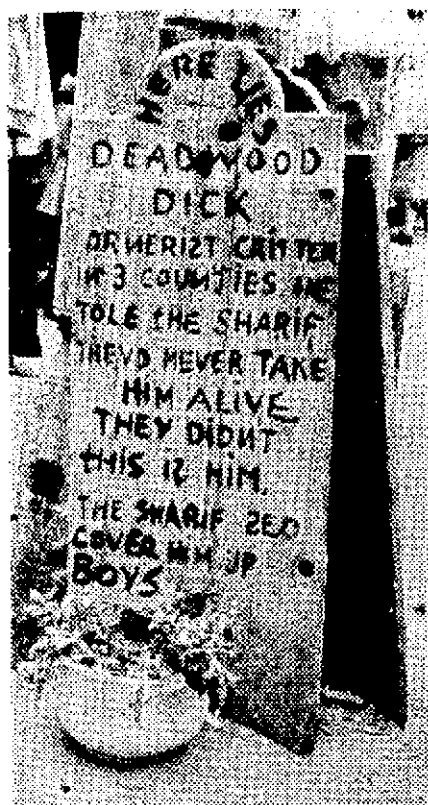 HERE LIES
DEADWOOD
DICK
ORNERIZT CRITTER
IN 3 COUNTIES HE
TOLE tHE SHARIF
THEYD NEVER TAKE
HIM ALIVE
THEY DIDNT
tHIS IZ HIM.
THE SHARIF ZED
COVER HIM UP
BOYS